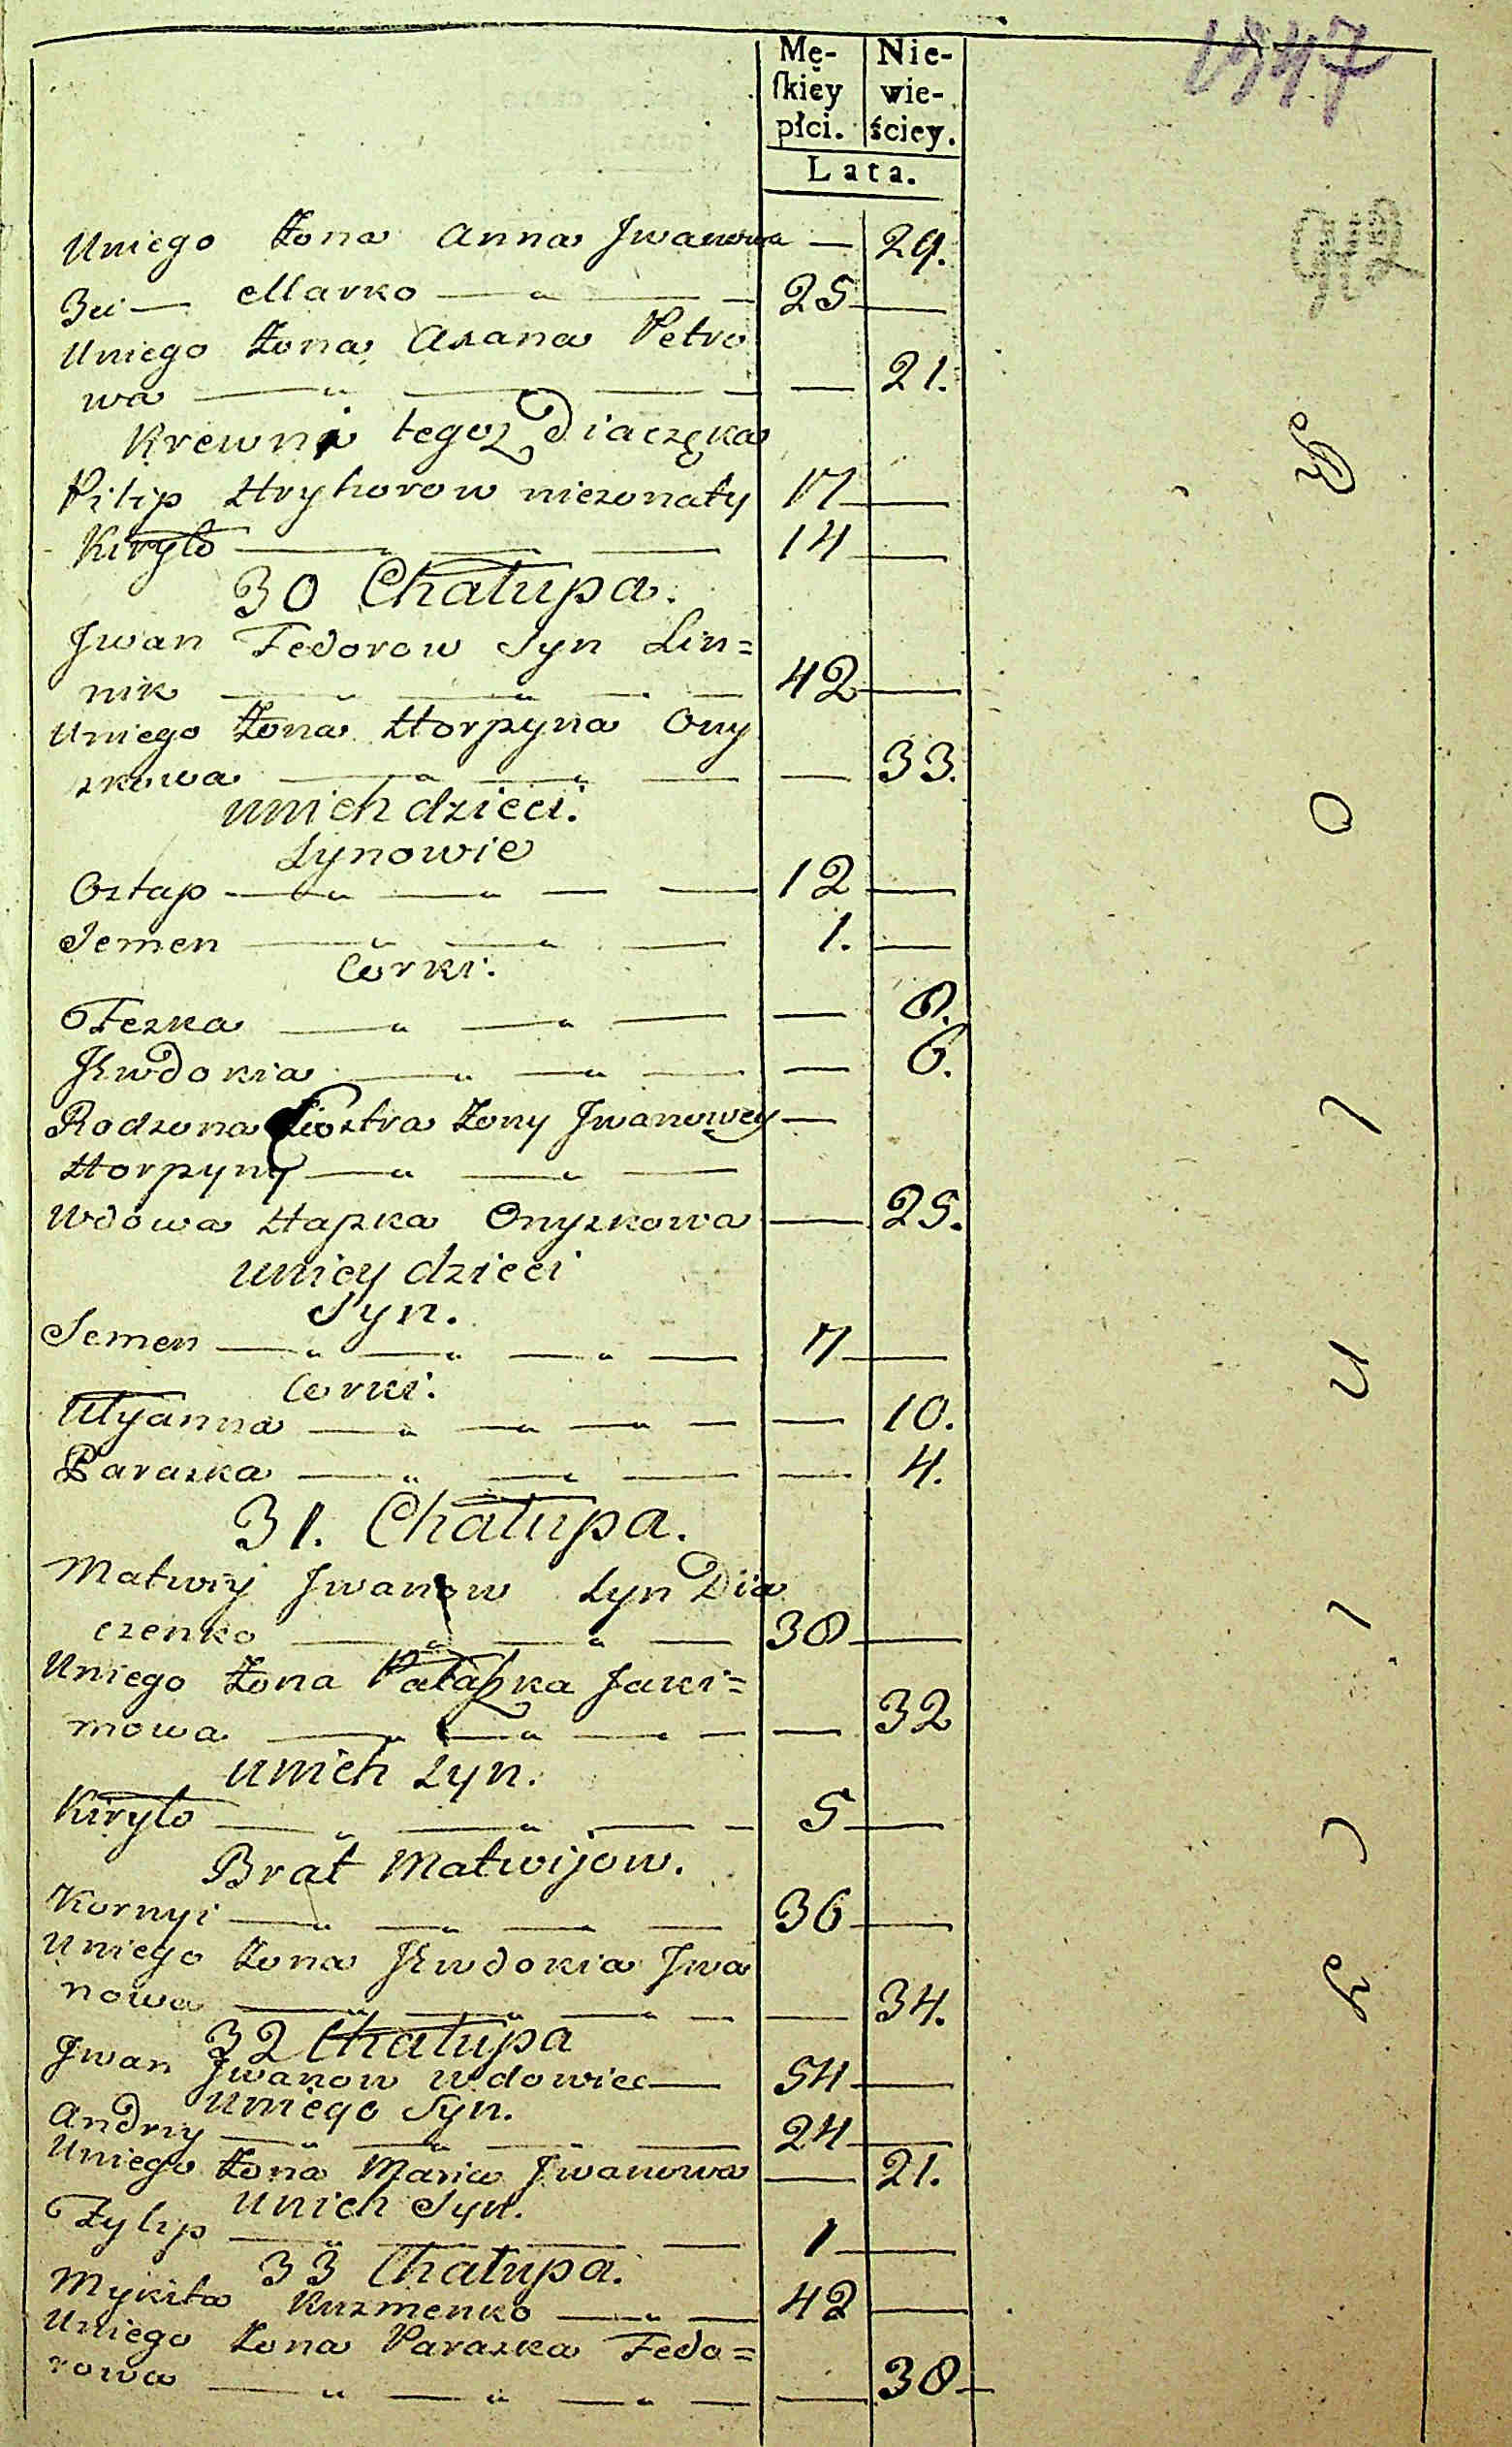 Mę- Nie-
ſkiey wie-
płci. ściey.
Lata.
1947
942
Uniego Żona Anna Jwanowa — 29.
3ci — Marko — 25 —
Uniego Żona Asana Petro
wa — 21.
Krewni tegoż Diaczęka
Pilip Hryhorow nieżonaty 17 —
Kiryło — 14 —
30 Chałupa.
Jwan Fedorow Syn Lin=
nik — 42 —
Uniego Żona Horpyna Ony
szkowa — 33.
unich dzieci.
Synowie
Ostap — 12 —
Semen — 1. —
Corki.
Feska — 8.
Jewdokia — 6.
Rodzona Siostra Żony Jwanowey —
Horpyny —
Wdowa Hapka Onyszkowa — 25.
uniey dzieci
Syn.
Semen — 7 —
Corki.
Ulyanna — 10.
Paraska — 4.
31. Chałupa.
Matwiy Jwanow Syn Dia
czenko — 38 —
Uniego Żona Pałaszka Jaki=
mowa — 32
unich Syn.
Kiryło — 5 —
Brat Matwijow.
Kornyi — 36 —
Uniego Żona Jewdokia Jwa
nowa — 34.
32 Chałupa
Jwan Jwanow wdowiec — 54 —
uniego Syn.
Andriy — 24 —
Uniego Żona Maria Jwanowa — 21.
unich Syn.
Fylip — 1 —
33 Chałupa.
Mykita Kuzmenko — 42 —
Uniego Żona Paraska Fedo=
rowa — 38 —